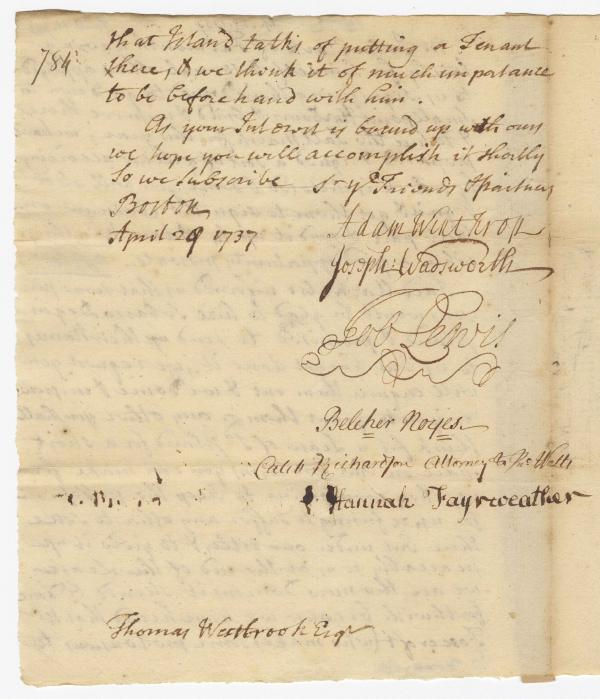 that Island talks of putting a Tenant
784
there, & we think it of much importance
to be beforehand with him.
As your Interest is bound up with ours
we hope you will accomplish it shortly
So we Subscribe Sr yr Friends & partners
Boston
April 29 1737
Adam Winthrop
Joseph: Wadsworth
Job Lewis
Belcher Noyes
Caleb Richardson Attorney to Wells
Hannah Fayrweather
Thomas Westbrook Esqr